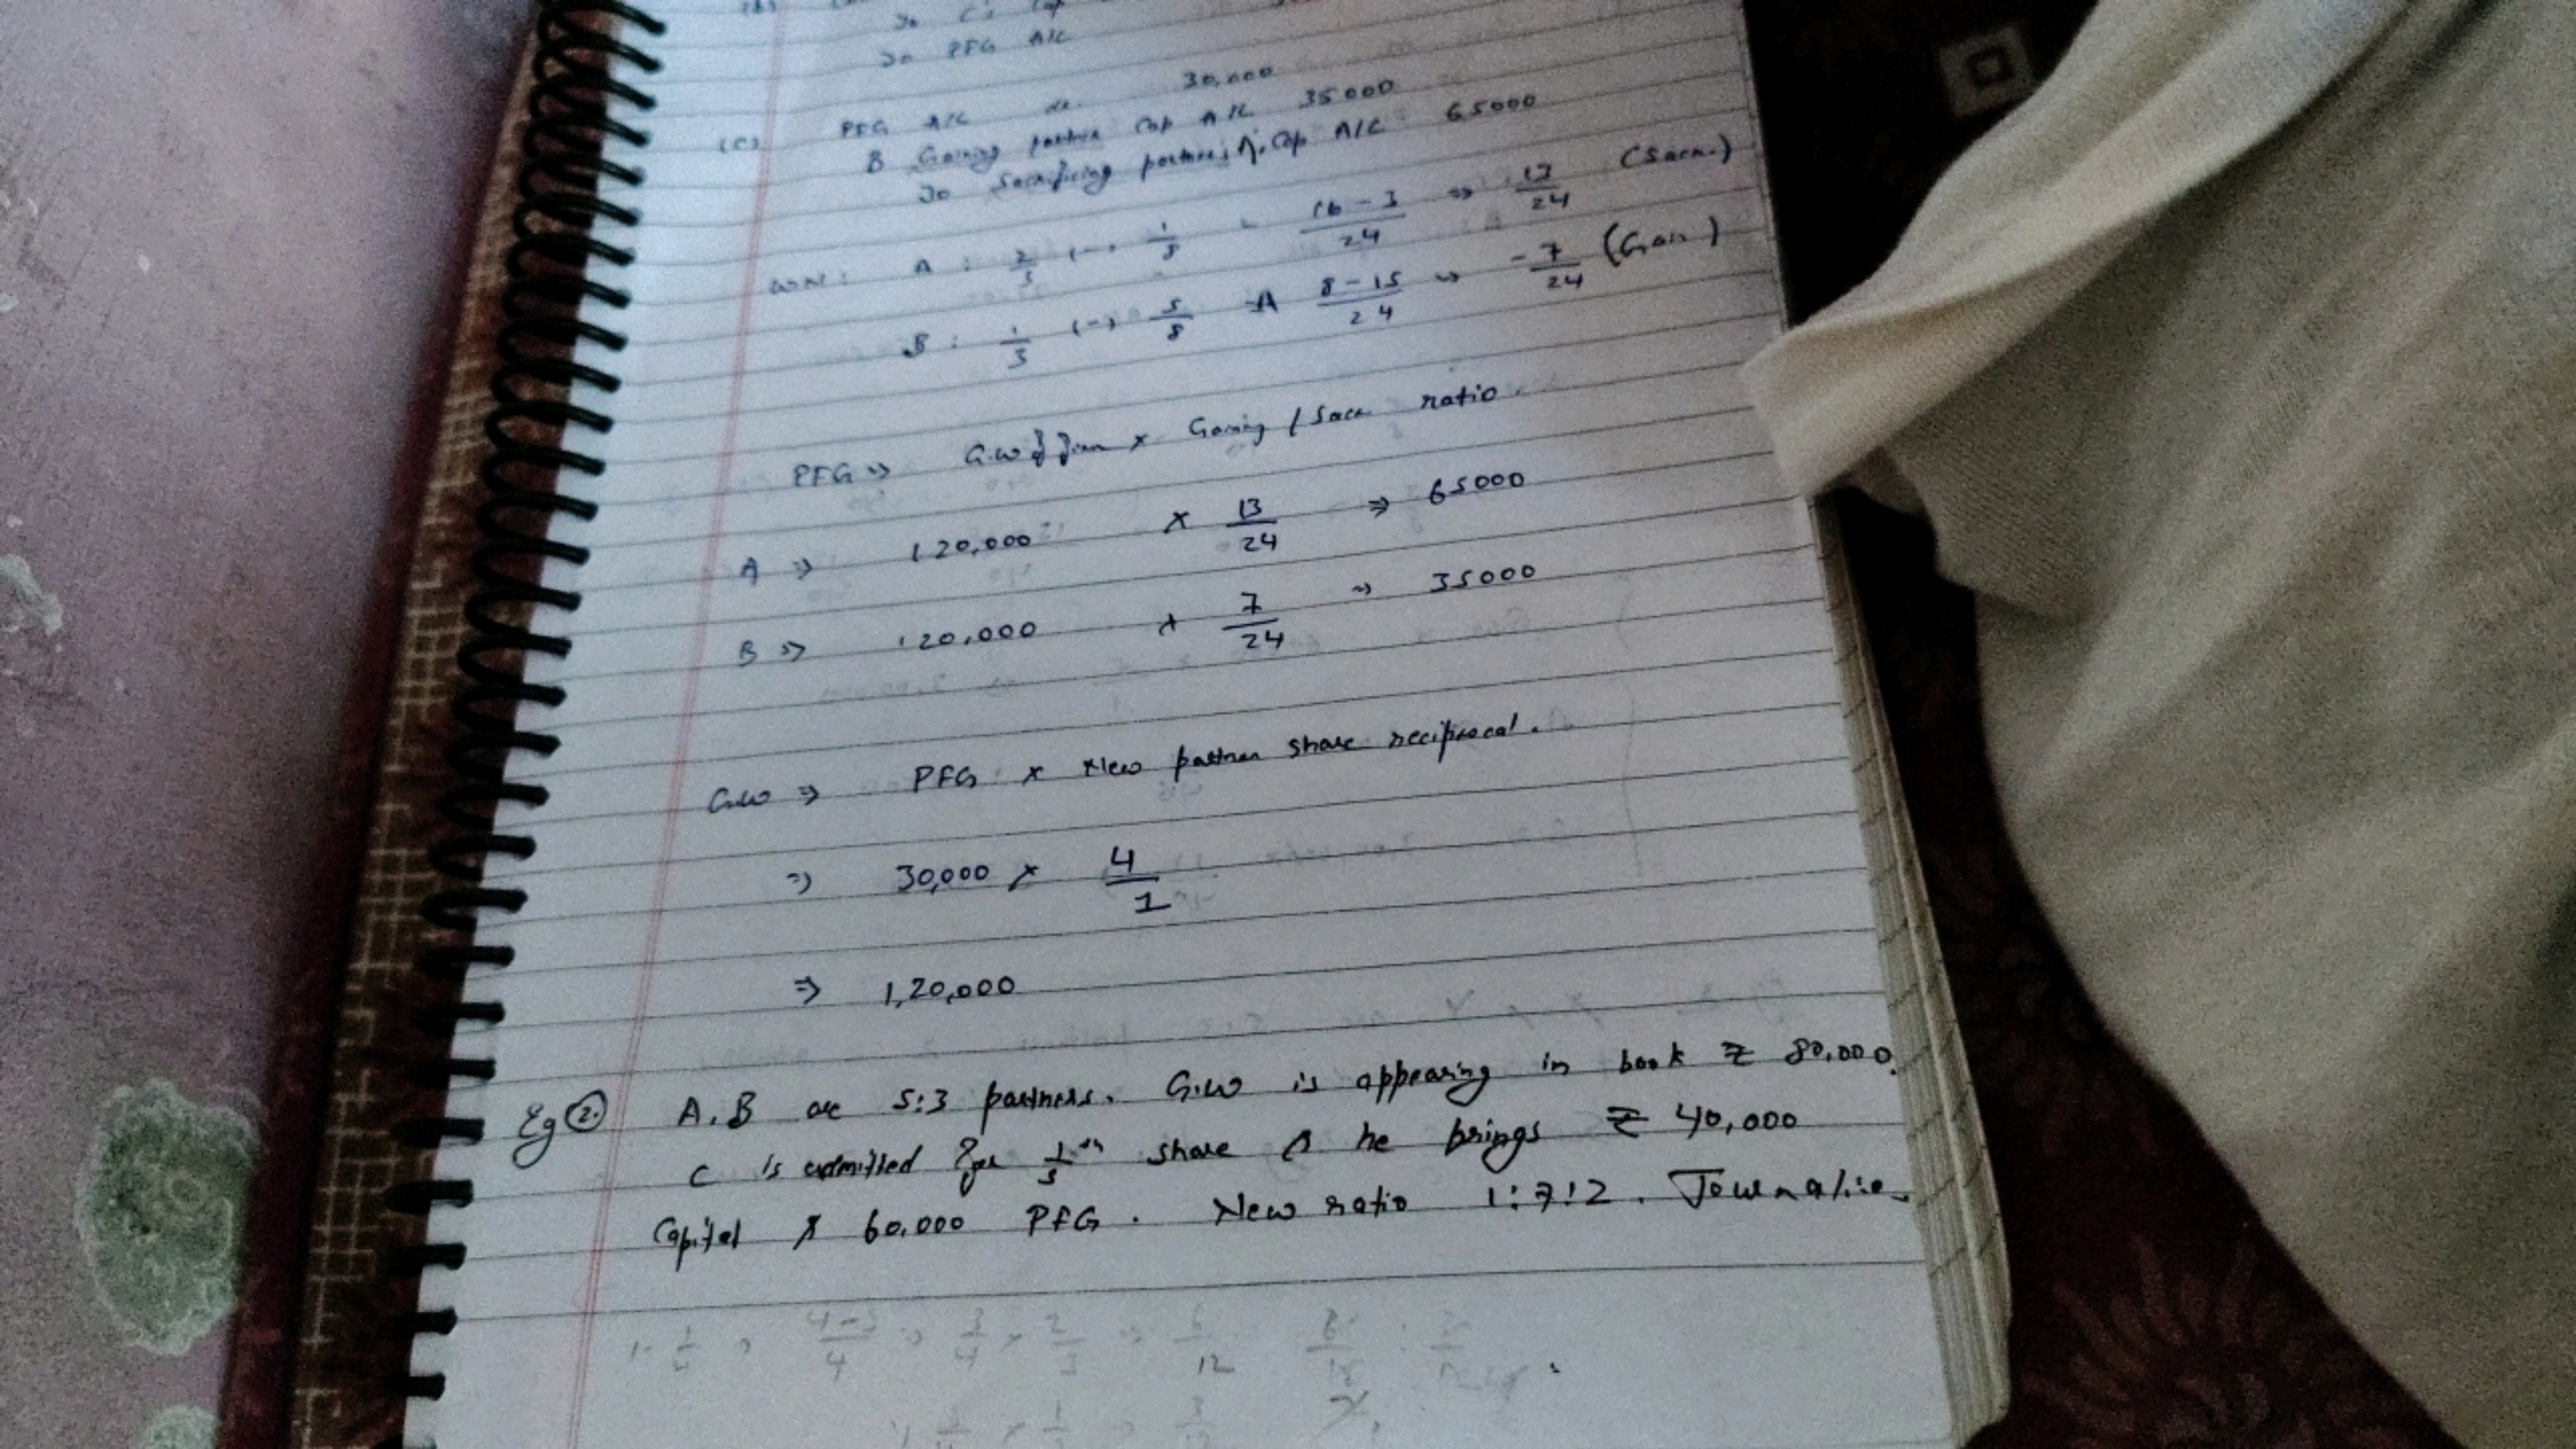 To C's Cap
To PFG A/C
(C) PFG A/C dr. 30,000
B Gaining partner Cap A/C 35000
To Sacrificing partner's A. Cap A/C 65000
WN: A : 2/3 (-) 1/8 = 16-3/24 ⇒ 13/24 (Sacr.)
B : 1/3 (-) 5/8 ⇒ 8-15/24 ⇒ -7/24 (Gain)
PFG ⇒ G.W of firm × Gaining / Sacr ratio.
A ⇒ 120,000 × 13/24 ⇒ 65000
B ⇒ 120,000 × 7/24 ⇒ 35000
G.W ⇒ PFG × New partner share reciprocal.
⇒ 30,000 × 4/1
⇒ 1,20,000
Eg 2. A, B are 5:3 partners. G.W is appearing in book ₹ 80,000.
C is admitted for 1/5th share & he brings ₹ 40,000
Capital & 60,000 PFG. New ratio 1:7:2. Journalise.